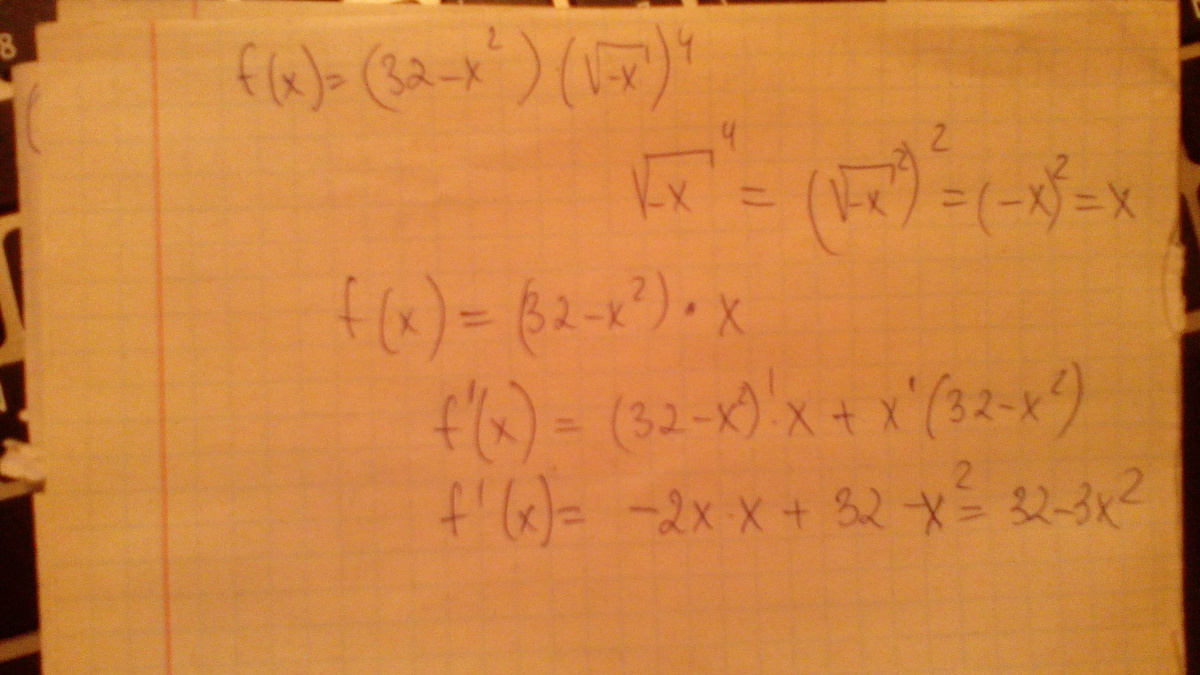 f(x)= (32-x²)·(√-x)⁴
√-x⁴ = (√-x²)² = (-x)² = x
f(x) = (32-x²)·x
f'(x) = (32-x²)'·x + x'(32-x²)
f'(x)= -2x·x + 32 -x² = 32-3x²